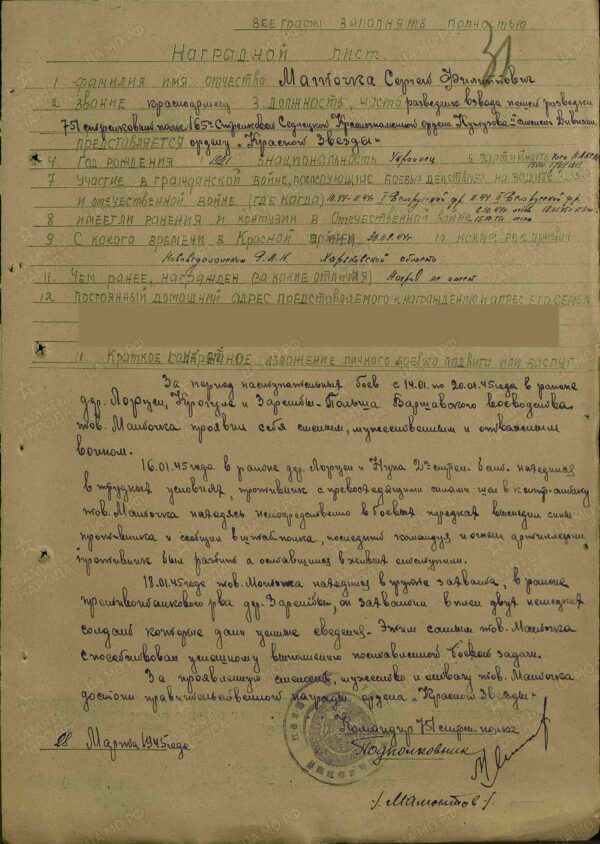 ВСЕ ГРАФЫ ЗАПОЛНЯТЬ ПОЛНОСТЬЮ.
Наградной лист.
1 Фамилия имя отчество Маточка Сергей Филиппович
2 Звание красноармеец 3. Должность, часть разведчик взвода пешей разведки
751 стрелковый полк 165й Стрелковой Седлецкой Краснознаменной ордена Кутузова II степени Дивизии.
Представляется ордену „Красной Звезды"
4 Год рождения 5. национальность Украинец 6. партийность
7 Участие в гражданской войне, последующих боевых действиях на защите
и отечественной войне (где когда) 10.44-11.44г. I Белорусский фр. 11.44 II Белорусский фр.
8 имеет ли ранения и контузии в Отечественной войне
9 С какого времени в Красной Армии 10 каким РВК призван
Нововодолажским Р.В.К Харьковской области
11. Чем ранее, награжден (за какие отличия) Наград не имеет
12 постоянный домашний адрес представляемого к награждению и адрес его семьи
1. Краткое конкретное изложение личного боевого подвига или заслуг
За период наступательных боев с 14.01. по 20.01.45 года в районе
дер. и Зарембы-Польша Варшавского воеводства
тов. Маточка проявил себя смелым, мужественным и отважным
воином.
16.01.45 года в районе др. и 2й стрел. бат. находился
в трудных условиях, противник с превосходящими силами шел в контр-атаку
тов. Маточка находясь непосредственно в боевых порядках выследил силы
противника и сообщил в штаб полка, последнего командуя и огнем артиллерии
противник был разбит а оставшиеся в живых отступили.
18.01.45 года тов. Маточка находился в группе захвата, в районе
противотанкового рва др. Зарембы, он захватил в плен двух немецких
солдат которые дали ценные сведения. Этим самым тов. Маточка
способствовал успешному выполнению поставленной боевой задачи.
За проявленную смелость, мужество и отвагу тов. Маточка
достоин правительственной награды ордена „Красной Звезды"
Командир 751 стрел. полка
28 Марта 1945 года Подполковник
/. Мамонтов /.